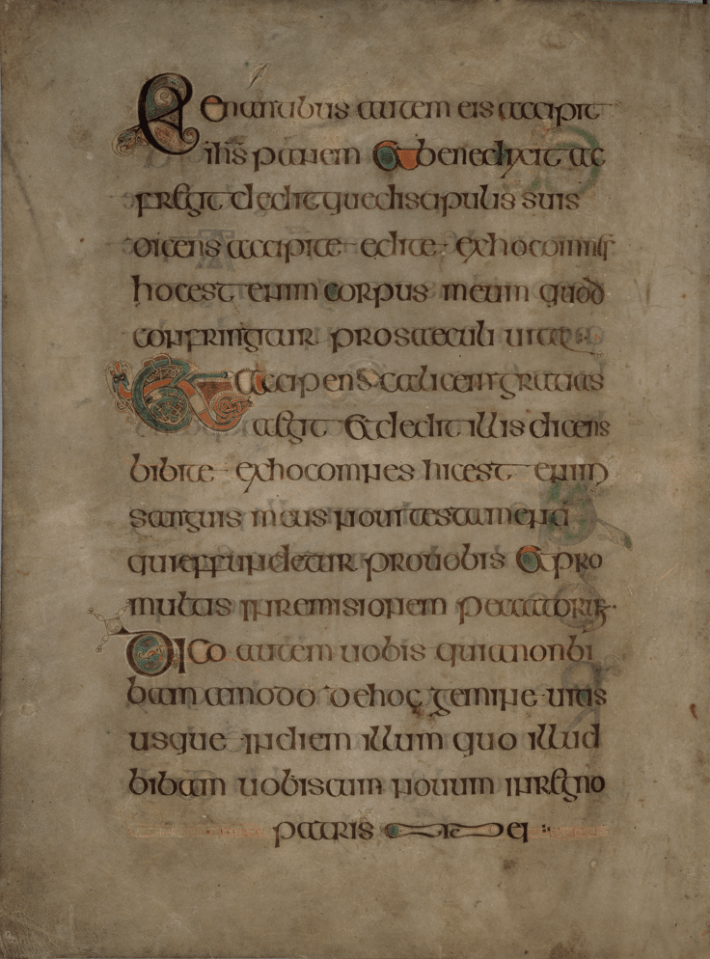 Cenantibus autem eis accipit
ihs panem & benedixit ac
fregit deditquediscipulis suis
dicens accipite edite exhocomnes
hocest enim corpus meum quod
confringitur prosaeculi uita
Et accipens calicem gratias
aegit & dedit illis dicens
bibite exhocomnes hicest enim
sanguis meus noui testamenti
quieffundetur prouobis & pro
multis inremisionem peccatorum
Dico autem uobis quianonbi
bam amodo dehoc genimine uitis
usque indiem illum quo illud
bibam uobiscum nouum inregno
patris mei